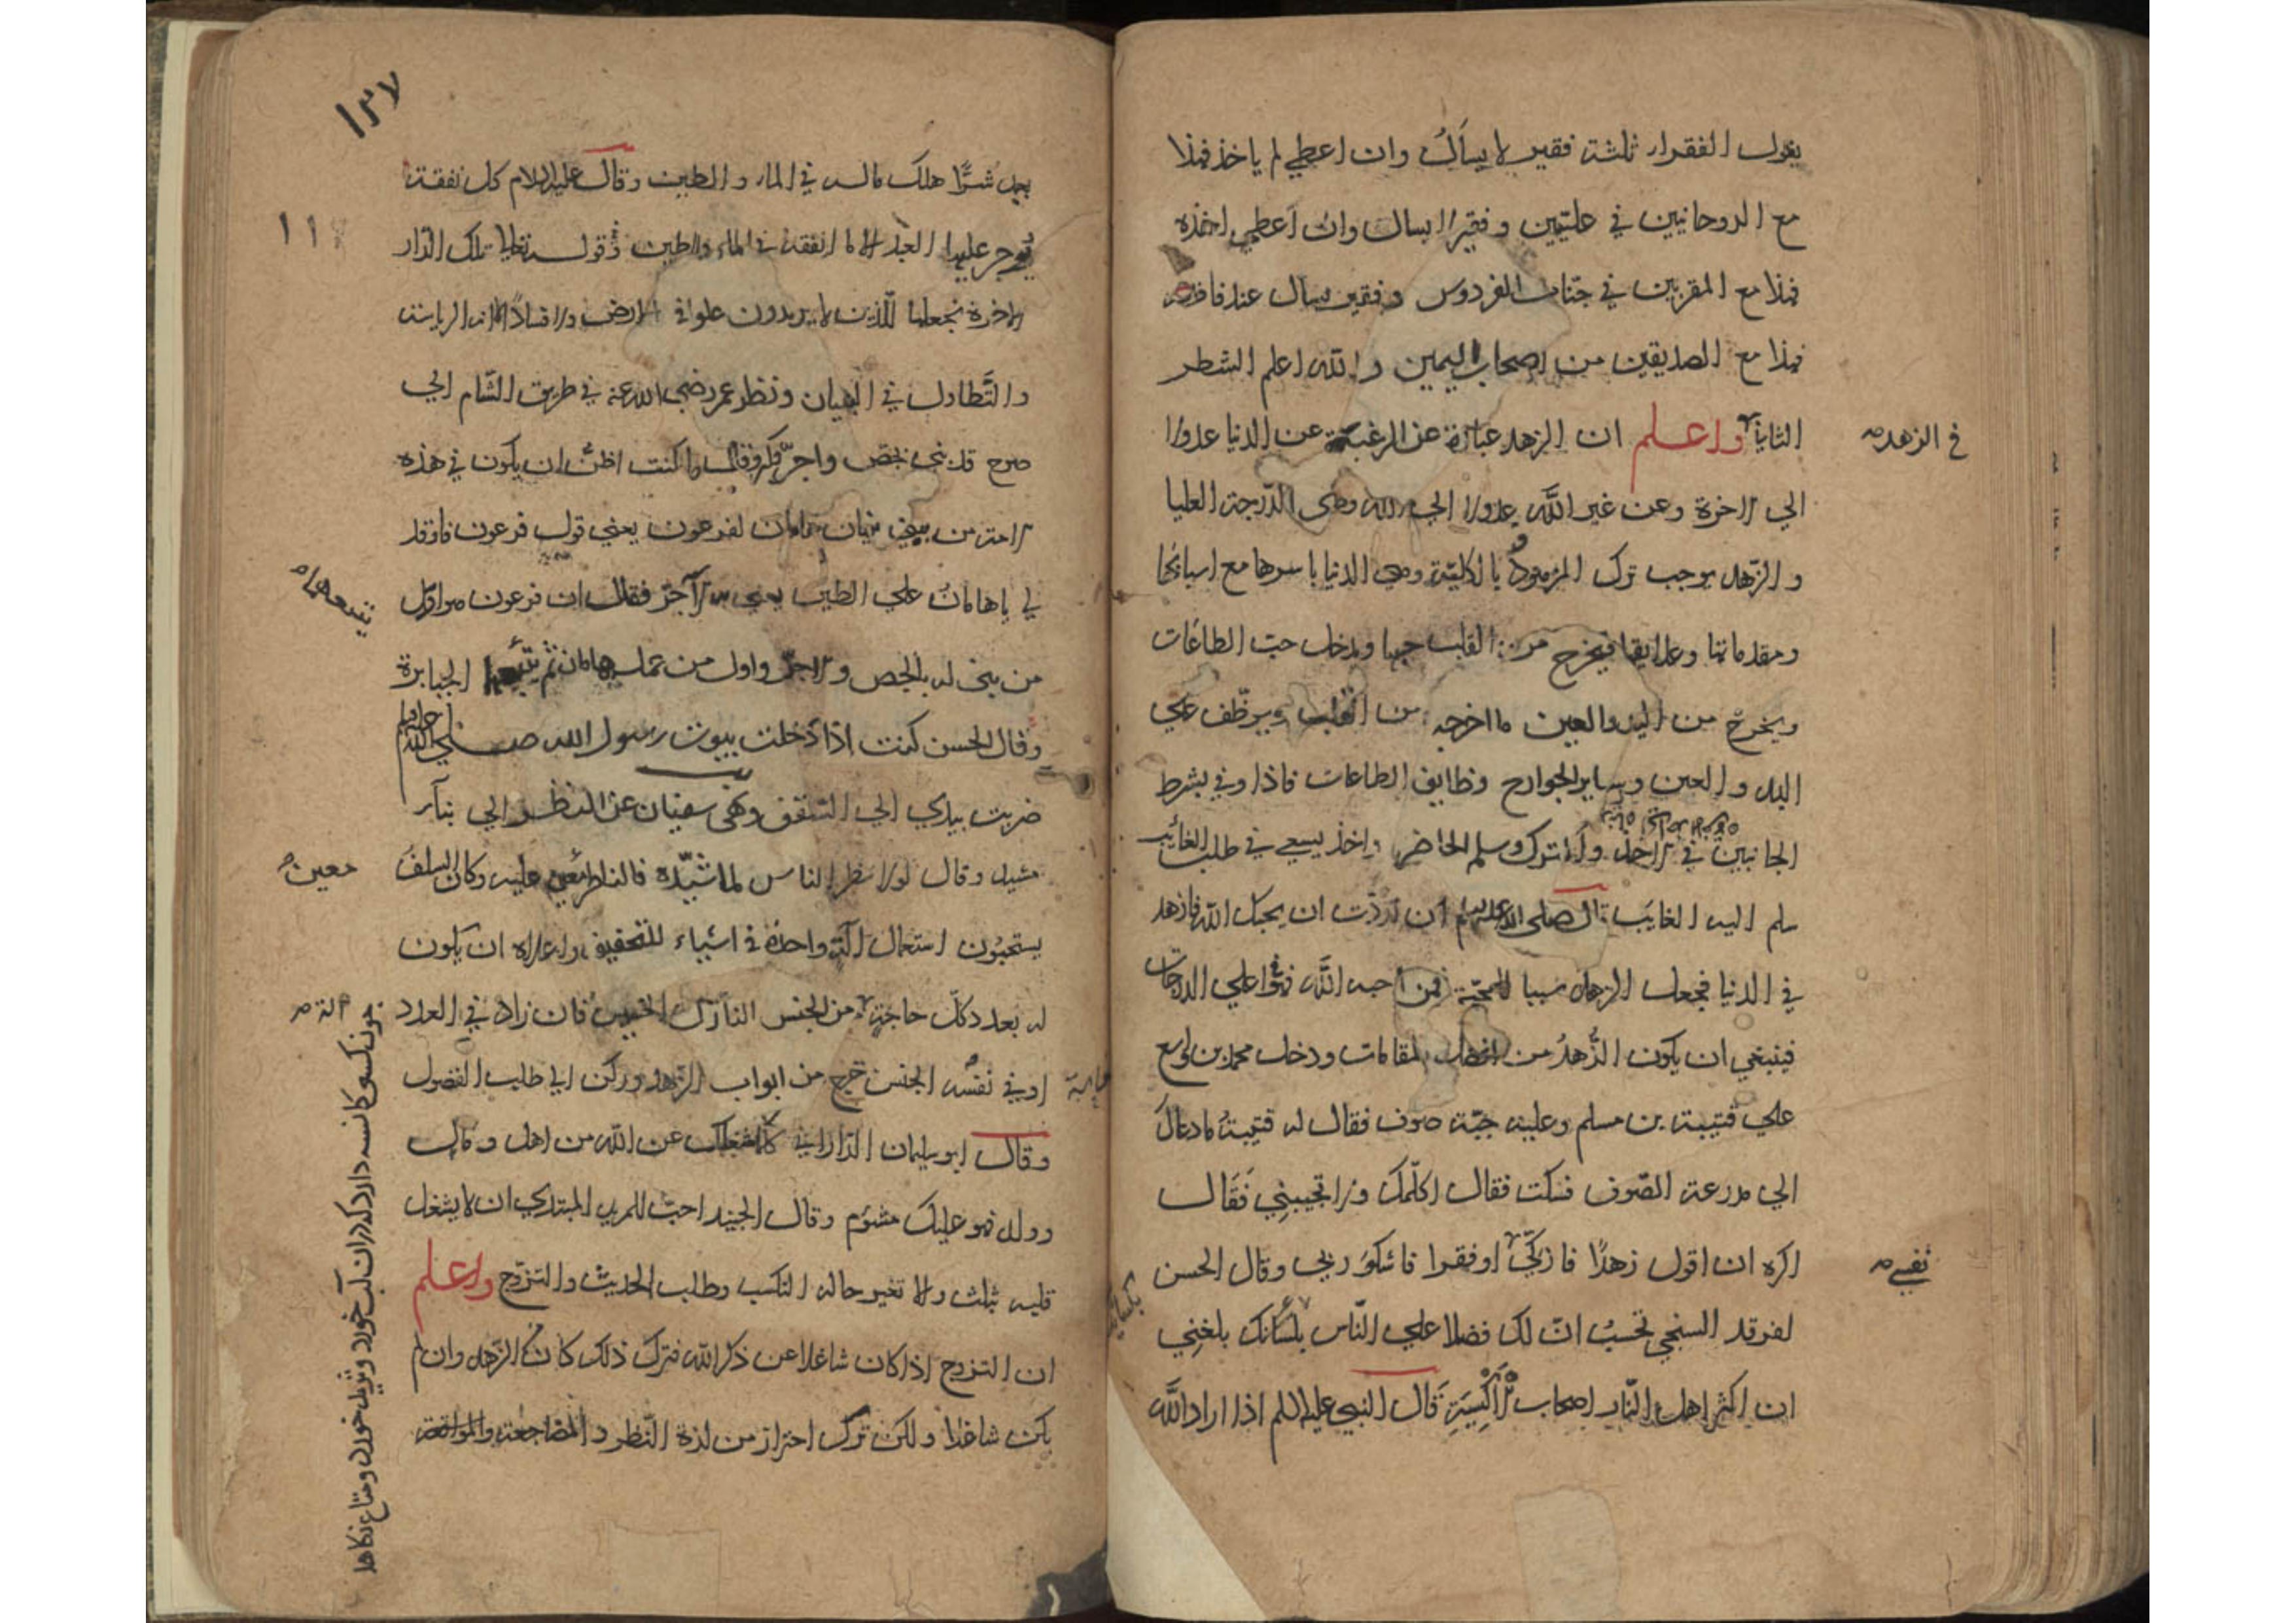 يقول الفقراء ثلثة فقير لا يسأل وان اعطي لم ياخذ فهذا
مع الروحانيين في عليين وفقير لا يسال وان اعطي اخذه
فهذا مع المقربين في جنات الفردوس وفقير يسال عند فاقته
فهذا مع الصديقين من اصحاب اليمين والله اعلم الشطر
الثاني واعلم ان الزهد عبارة عن الرغبة عن الدنيا عدولا
في الزهد
الي الاخرة وعن غير الله عدولا الي الله وهي الدرجة العليا
والزهد يوجب ترك المزهود بالكلية وهي الدنيا باسرها مع اسبابها
ومقدماتها وعلايقها فيخرج من القلب حبها ويدخل حب الطاعات
ويخرج من اليد والعين ما اخرجه من القلب ويوظف علي
اليد والعين وساير الجوارح وظايف الطاعات فاذا وفي بشرط
الجانبين في الاخذ والترك وسلم الحاضر واخذ يسعي في طلب الغائب
سلم اليه الغايب قال صلى الله عليه وسلم ان اردت ان يحبك الله فازهد
في الدنيا فجعل الزهد سببا للمحبة فمن احبه الله فهو اعلي الدرجات
فينبغي ان يكون الزهد من افضل المقامات ودخل محمد بن واسع
علي قتيبة بن مسلم وعليه جبة صوف فقال له قتيبة ما دعاك
الي مدرعة الصوف فسكت فقال اكلمك ولا تجيبني فقال
اكره ان اقول زهدا فازكي او فقرا فاشكو ربي وقال الحسن
نفسي
لفرقد السنجي تحسب ان لك فضلا علي الناس بلسانك بلغني
بكسائك
ان اكثر اهل النار اصحاب الاكسية قال النبي عليه السلم اذا اراد الله
١٣٧
بعبد شرا هلك ماله في الماء والطين وقال عليه السلام كل نفقة
١١
يوجر عليها العبد الا ما انفقه في الماء والطين وقوله تعالي تلك الدار
الاخرة نجعلها للذين لا يريدون علوا في الارض ولا فسادا انه الرياسة
والتطاول في البنيان ونظر عمر رضي الله عنه في طريق الشام الي
صرح قد بني بجص واجر فكبر وقال ما كنت اظن ان يكون في هذه
الامة من يبني بنيان هامان لفرعون يعني قول فرعون فاوقد
لي يا هامان علي الطين يعني به الآجر فقال ان فرعون هو اول
تبعهما
من بني له بالجص والاجر واول من عمله هامان ثم تبعها الجبابرة
وقال الحسن كنت اذا دخلت بيوت رسول الله صلي الله عليه وسلم
ضربت بيدي الي السقف ونهي سفيان عن النظر الي بناء
مشيد وقال لولا نظر الناس لما شيده فالناظر معين عليه وكان السلف
معين
يستحبون استعمال آلة واحدة في اشياء للتخفيف واعلاه ان يكون
له بعدد كل حاجة من الجنس النازل الخسيس فان زاد في العدد
آلة
او في نفسه الجنس خرج من ابواب الزهد وركن الي طلب الفضول
وقال ابو سليمان الداراني كلما شغلك عن الله من اهل ومال
وولد فهو عليك مشؤم وقال الجنيد احب للمريد المبتدي ان لا يشغل
قلبه بثلث والا تغير حاله التكسب وطلب الحديث والتزوج واعلم
ان التزوج اذا كان شاغلا عن ذكر الله فترك ذلك كان من الزهد وان لم
يكن شاغلا ولكن ترك احترازا من لذة النظر والمضاجعة والمواقعة
چون كسی كاسه دارد كه در ان آب خورد و ثريد خورد و متاع نكاهد